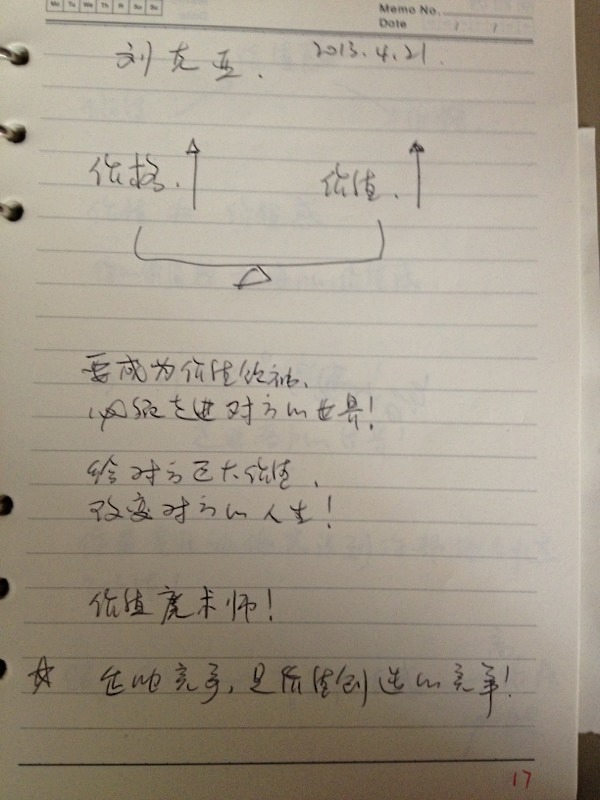 Mo Tu We Th Fr Sa Su
Memo No.
Date / /
刘克亚. 2013.4.21.
价格. 价值.
要成为价值的神,
必须走进对方的世界!
给对方巨大价值,
改变对方的人生!
价值魔术师!
☆ 在地竞争,是价值创造的竞争!
17